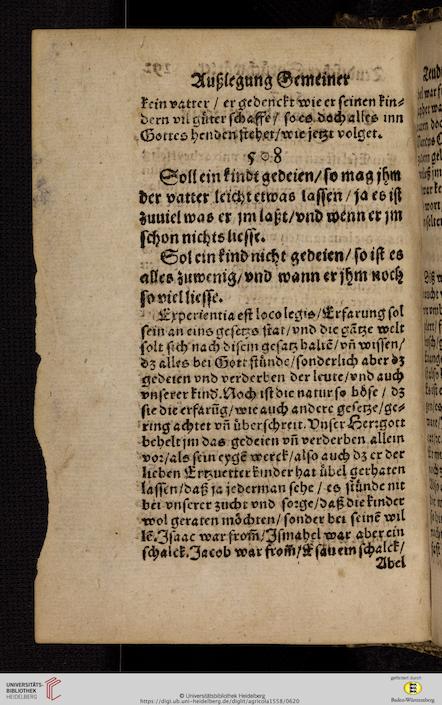 Außlegung Gemeiner
kein vatter / er gedenckt wie er seinen kin⸗
dern vil güter schaffe / so es doch alles inn
Gottes henden stehet/wie jetzt volget.
508
Soll ein kindt gedeien/so mag jhm
der vatter leicht etwas lassen/ja es ist
zuuiel was er jm laßt/vnd wenn er jm
schon nichts liesse.
Sol ein kind nicht gedeien/so ist es
alles zuwenig/vnd wann er jhm noch
so viel liesse.
Experientia est loco legis/Erfarung sol
sein an eins gesetzs stat/vnd die gãtze welt
solt sich nach disem gesatz haltẽ/vñ wissen/
dz alles bei Gott stünde/sonderlich aber dz
gedeien vnd verderben der leute/vnd auch
vnserer kind. Noch ist die natur so böse / dz
sie die erfarũg/wie auch andere gesetze/ge⸗
ring achtet vñ überschreit. Vnser Herrgott
behelt jm das gedeien vñ verderben allein
vor/als sein eygẽ werck/also auch dz er der
lieben Ertzuetter kinder hat übel gerhaten
lassen/daß ja jederman sehe / es stünde nit
bei vnserer zucht vnd sorge/daß die kinder
wol geraten möchten/sonder bei seinẽ wil
lẽ. Isaac war from̃/Ismahel war aber ein
schalck. Jacob war from̃/Esau ein schalck/
Abel
UNIVERSITÄTS-
BIBLIOTHEK
HEIDELBERG
© Universitätsbibliothek Heidelberg
https://digi.ub.uni-heidelberg.de/diglit/agricola1558/0620
gefördert durch
Baden-Württemberg